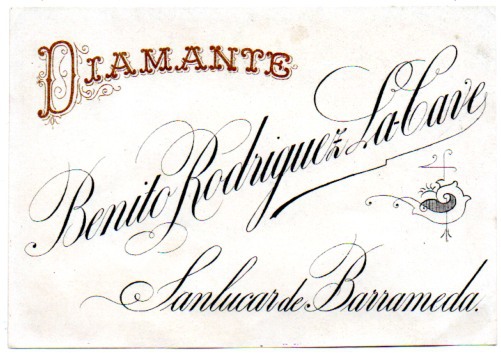 DIAMANTE
Benito Rodriguez La-Cave
Sanlucar de Barrameda.